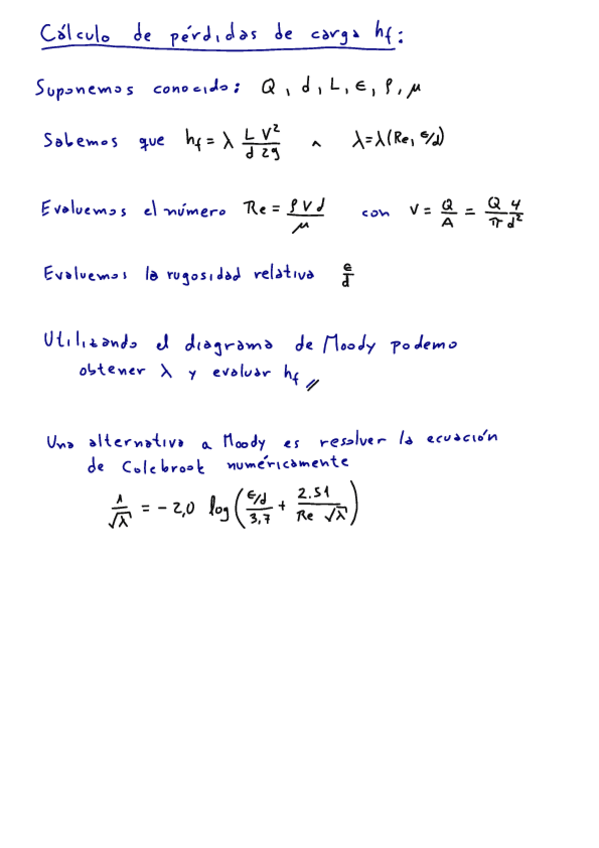 Cálculo de pérdidas de carga hf:
Suponemos conocido: Q, d, L, ϵ, ρ, μ
Sabemos que hf = λ L/d V²/2g ∧ λ=λ(Re, ϵ/d)
Evaluemos el número Re = ρVd/μ con V = Q/A = Q/π 4/d²
Evaluemos la rugosidad relativa ϵ/d
Utilizando el diagrama de Moody podemo
obtener λ y evaluar hf //
Una alternativa a Moody es resolver la ecuación
de Colebrook numéricamente
1/√λ = - 2,0 log( (ϵ/d)/3,7 + 2.51/(Re √λ) )